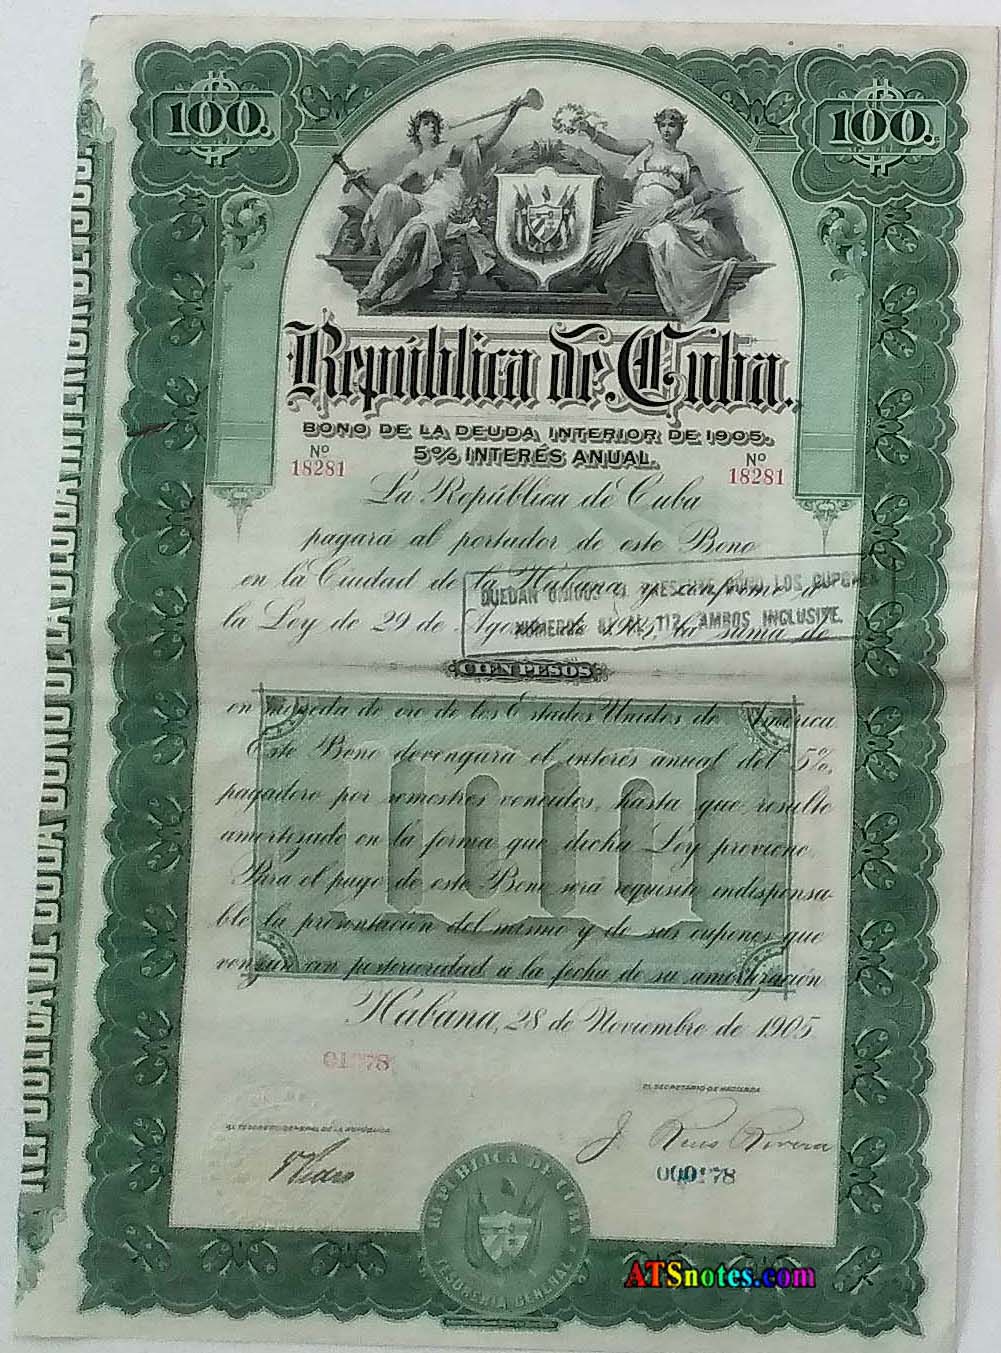 100.
100.
República de Cuba.
BONO DE LA DEUDA INTERIOR DE 1905.
5% INTERÉS ANUAL.
Nº
18281
Nº
18281
La República de Cuba
pagará al portador de este Bono
en la Ciudad de la Habana y conforme a
la Ley de 29 de Agosto de 1905, la suma de
QUEDAN UNIDOS AL PRESENTE BONO LOS CUPONES
NUMEROS 81 AL 112 AMBOS INCLUSIVE.
CIEN PESOS
en moneda de oro de los Estados Unidos de América.
Este Bono devengará el interés anual del 5%,
pagadero por semestres vencidos, hasta que resulte
amortizado en la forma que dicha Ley previene.
Para el pago de este Bono será requisito indispensa-
ble la presentación del mismo y de sus cupones que
venzan con posterioridad a la fecha de su amortización
Habana, 28 de Noviembre de 1905
EL SECRETARIO DE HACIENDA
EL TESORERO GENERAL DE LA REPUBLICA
J. Rius Rivera
REPUBLICA DE CUBA
TESORERIA GENERAL
REPUBLICA DE CUBA BONO DE LA DEUDA INTERIOR DE 1905.
ATSnotes.com